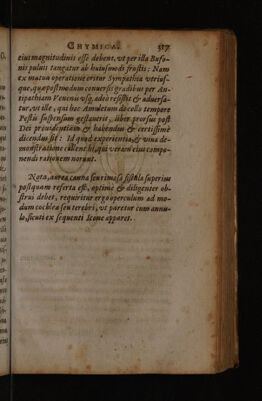 CHYMICA. 317
eius magnitudinis esse debent, ut per illa Bufo-
nis pulvis tangatur ab huiusmodi frustis: Nam
ex mutua operatione oritur Sympathia utrius-
que, quæ postmodum conversis gradibus per An-
tipathiam Veneni usq; adeo resistit & adversa-
tur, ut ille, qui hoc Amuletum de collo tempore
Pestis suspensum gestaverit, liber prorsus post
Dei providentiam & habendus & certissimè
dicendus sit: Id quod experientia, & viva de-
monstratione callent hi, qui veram eius compo-
nendi rationem norunt.
Nota, aurea canna seu rimosa fistula superius
postquam referta est, optimè & diligenter ob-
strui debet, requiritur ergo operculum ad mo-
dum cochleæ seu terebri, ut paretur cum annu-
lo, sicuti ex sequenti Icone apparet.